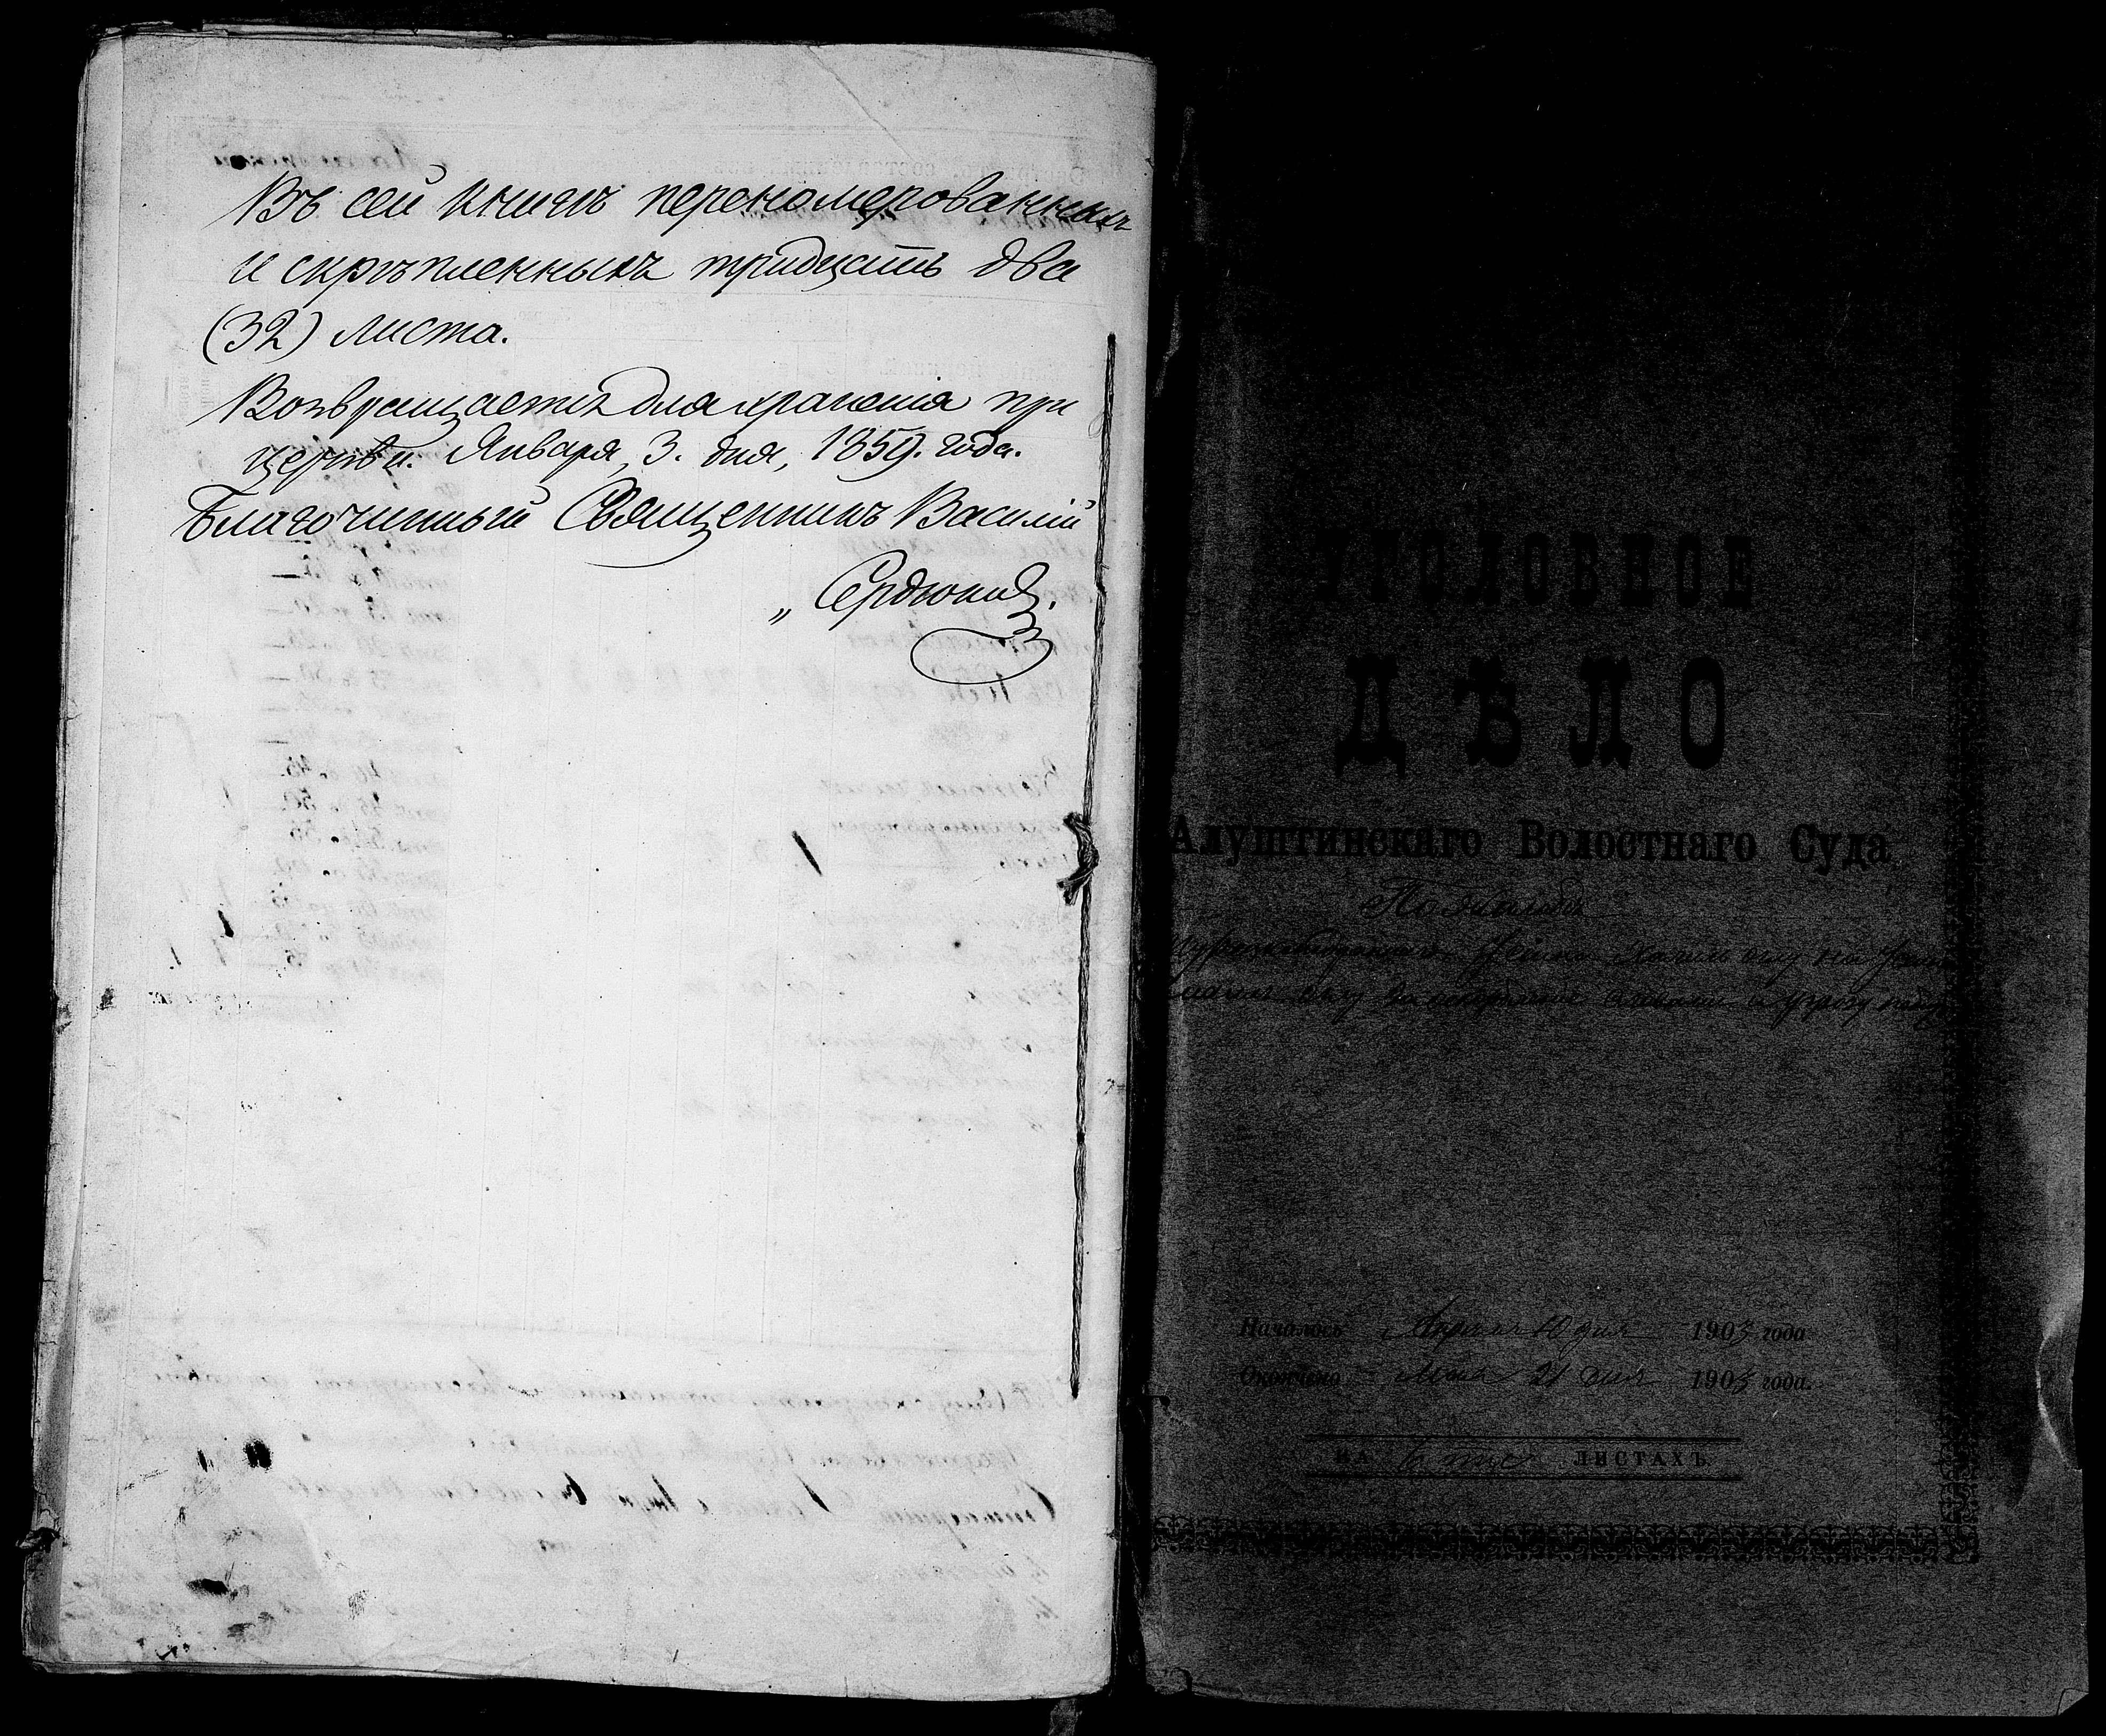 Въ сей книгѣ перекомерованныхъ
и скрѣпленныхъ тридцать два
(32) листа.
Возвращается для храненія при
церкви. Января, 3. дня, 1859. года.
Благочинный Священникъ Василій
„ Сердюковъ.
УГОЛОВНОЕ
ДѢЛО
Алуштинскаго Волостнаго Суда
По жалобѣ
оглу на
оглу за оскорбленіе словами и угрозу
Началось Апрѣля 10 дня 1903 года
Окончено Мая 21 дня 1903 года.
НА 6 ти ЛИСТАХЪ.